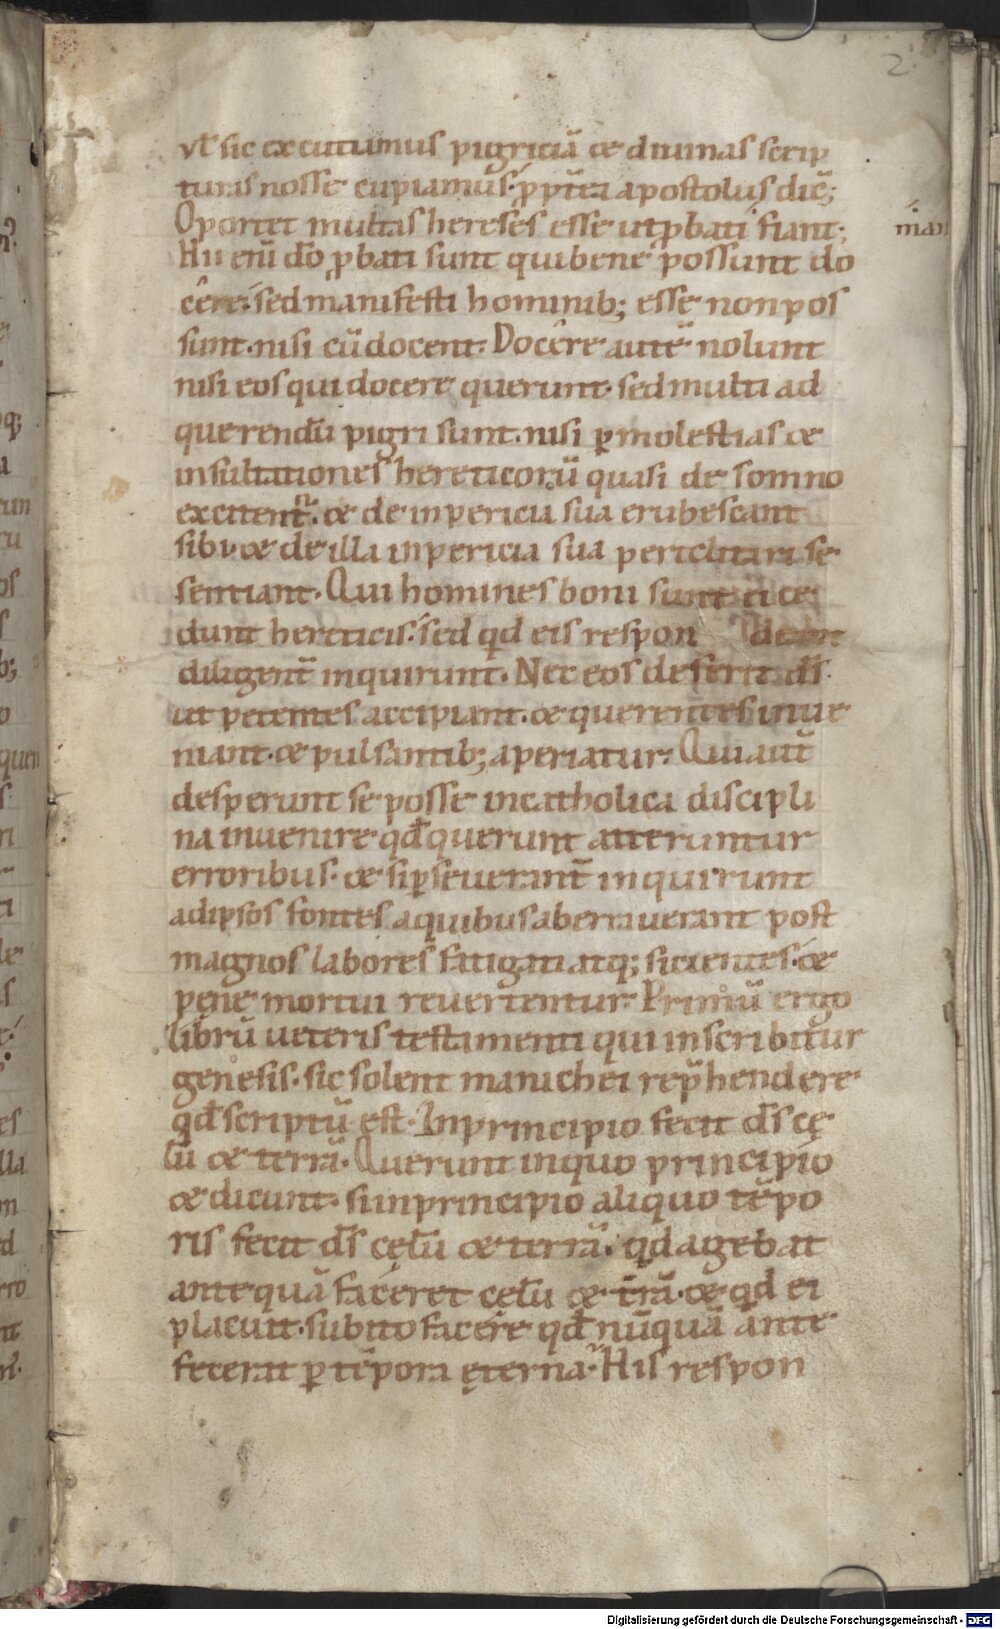 2
vt sic excutiamus pigriciā & diuinas scrip
turas nosse cupiamus. ꝓpt̄ea apostolus dic̄;
Oportet multas hereses esse ut ꝓbati fiant;
man
Hii eni dō ꝓbati sunt qui bene possunt do
cêre. sed manifesti hominib; esse non pos
sunt. nisi cū docent. Docêre autē nolunt
nisi eos qui docere querunt. sed multi ad
querendū pigri sunt. nisi ꝑ molestias &
insultationes hereticorū quasi de somno
excitent̄. & de inpericia sua erubescant
sibi. & de illa inpericia sua periclitari se
sentiant. Qui homines boni sunt ñ ce
dunt hereticis. sed qd eis respondeant
diligent̄ inquirunt. Nec eos deserit ds̄.
ut petentes accipiant. & querentes inue
niant. & pulsantib; aperiatur. Qui aut̄
desperunt se posse in catholica discipli
na invenire qđ querunt atteruntur
erroribus. & si ꝑseuerant̄ inquirunt
ad ipsos fontes a quibus aberrauerant post
magnos labores fatigati atq; sicientes. &
pęne mortui revertentur. Primū ergo
librū veteris testamenti qui inscribitur
genesis. sic solent manichei rep̄hendere
qđ scriptū est. In principio fecit ds̄ cę
lū & terrā. Querunt in quo principio
& dicunt. si in principio aliquo tēpo
ris fecit ds̄ cęlū & terrā. qd agebat
ante quā faceret cęlū & t̄rā. & qd ei
placuit. subito facere qđ nūquā ante
fecerat ꝑ tēpora ęterna. His respon
Digitalisierung gefördert durch die Deutsche Forschungsgemeinschaft - DFG